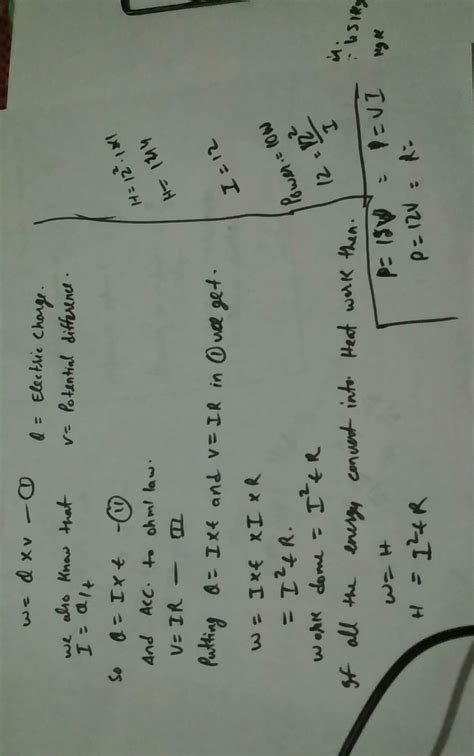 W = Q x V — (I)
Q = Electric Charge.
V = Potential difference.
we also know that
I = Q/t
So Q = I x t - (II)
And Acc. to ohm's law.
V = IR — III
Putting Q = I x t and V = IR in (I) we get.
W = I x t x I x R
= I²t R.
Work done = I² t R
If all the energy convert into Heat work then.
W = H
H = I² t R
I = 12
Power = 10W
12 = 12²/I
P = VI
P = 12V = R =